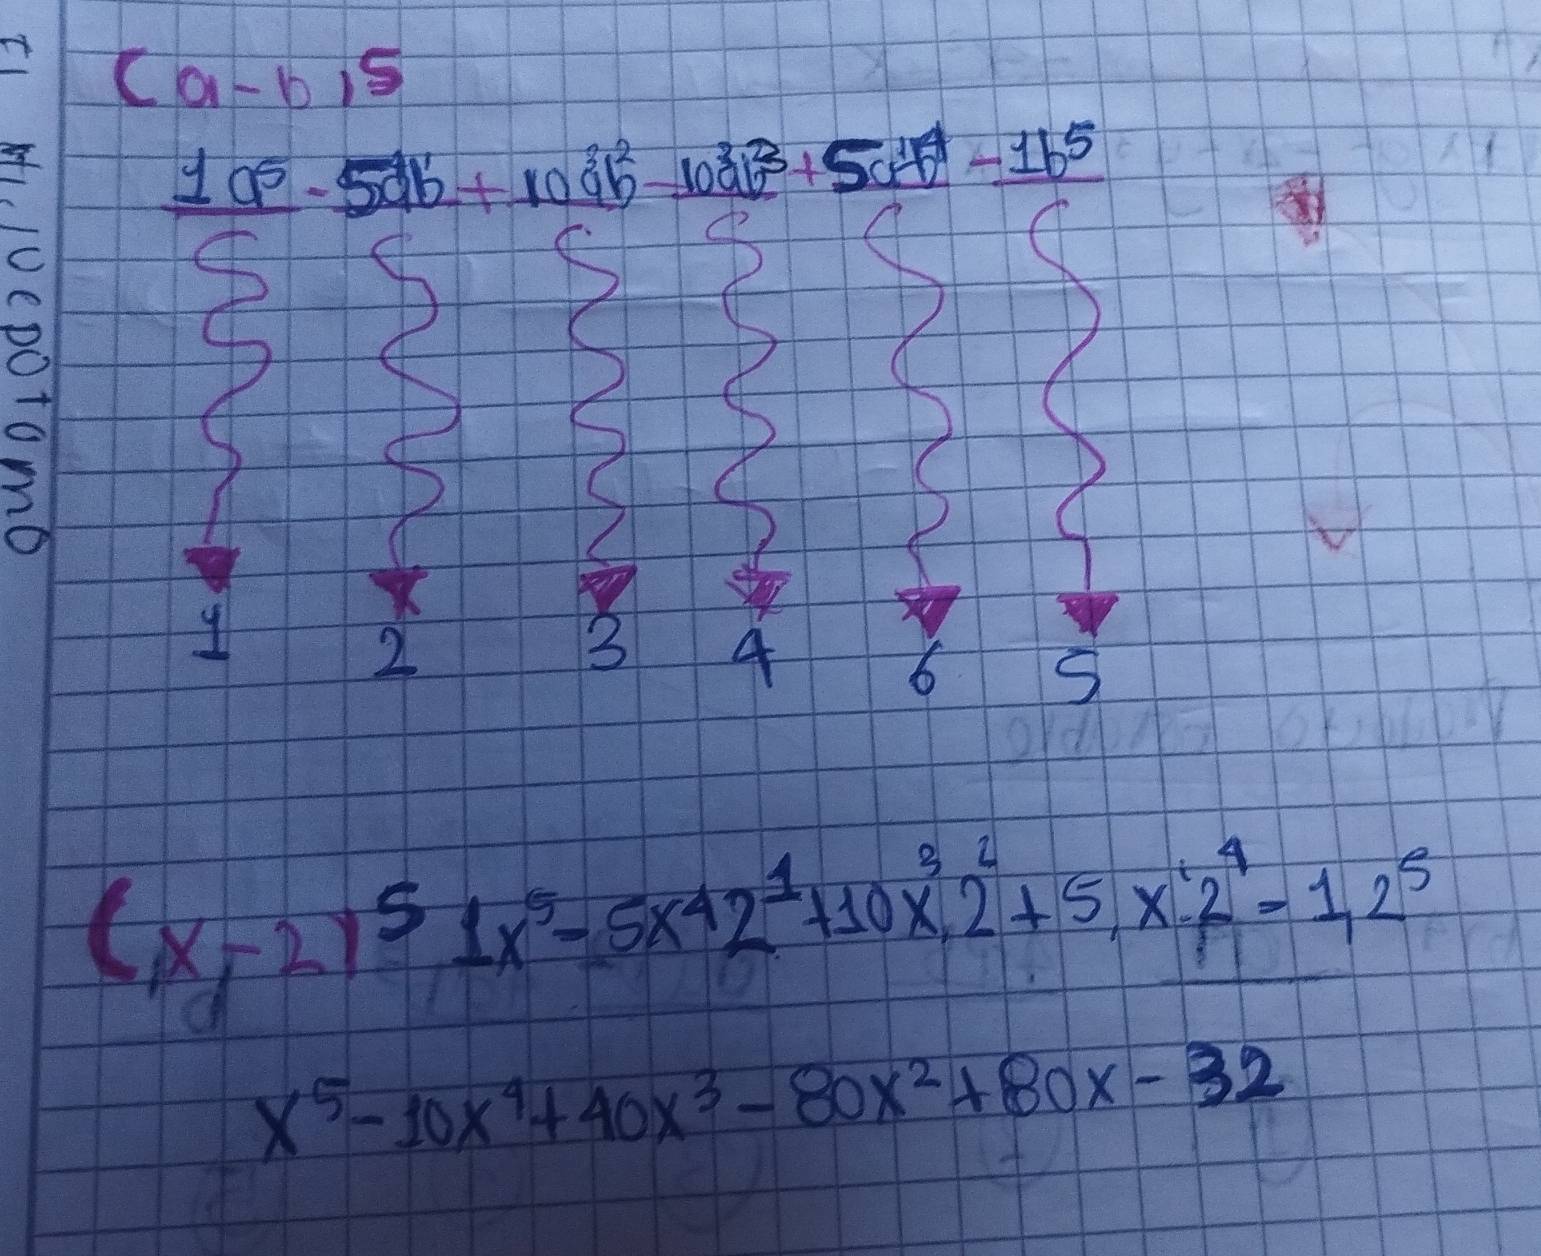 (a-b)5
1a⁵ - 5a⁴b¹ + 10a³b² - 10a²b³ + 5a¹b⁴ - 1b⁵
1 2 3 4 6 5
(x-2)⁵ 1x⁵ - 5x⁴2¹ + 10x³,2² + 5,x¹·2⁴ - 1,2⁵
x⁵ - 10x⁴ + 40x³ - 80x² + 80x - 32